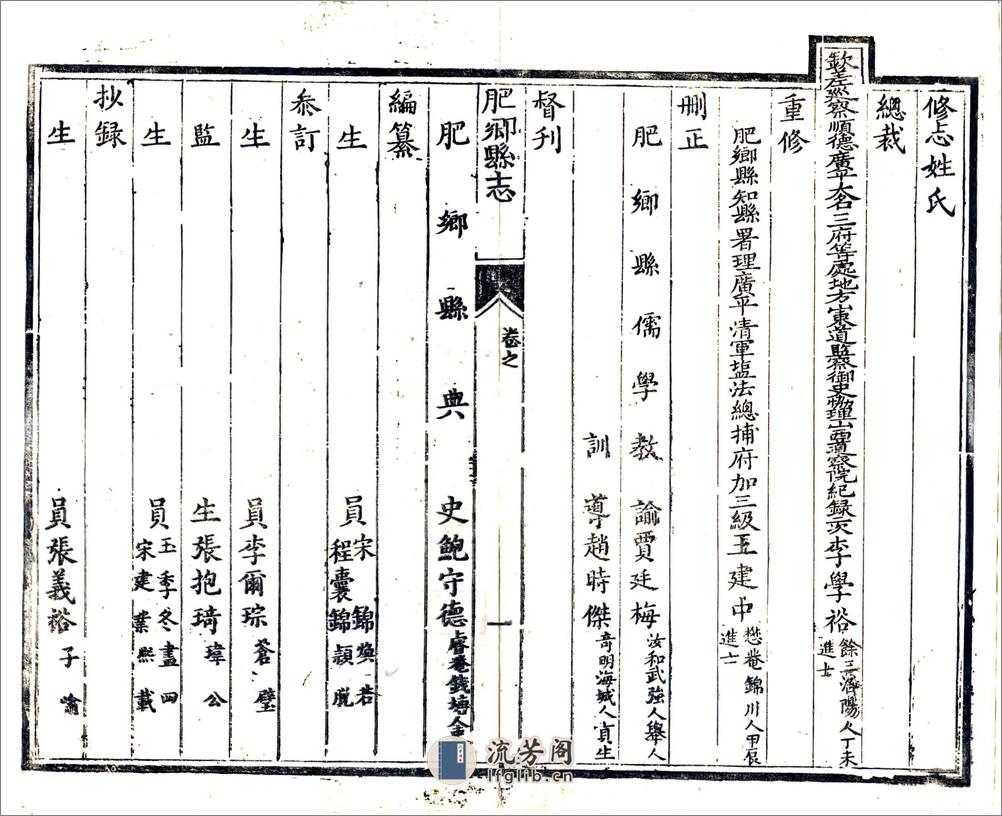 修志姓氏
總裁
欽差巡察順德廣平大名三府等處地方山東道監察御史協理山西道察院紀錄一次李學裕餘三濟陽人丁未進士
重修
肥鄉縣知縣署理廣平清軍塩法總捕府加三級王建中懋菴錦川人甲辰進士
刪正
肥鄉縣儒學教諭賈廷梅汝和武強人舉人
訓導趙時傑奇明海城人貢生
督刊
肥鄉縣志 卷之 一
肥鄉縣典史鮑守德睿菴錢塘人
編纂
生員宋錦煥若
程囊錦穎脫
叅訂
生員李爾琮蒼璧
監生張抱琦瑋公
生員王季冬晝四
宋建業熙載
抄録
生員張義裕子
流芳阁
lfglib.cn